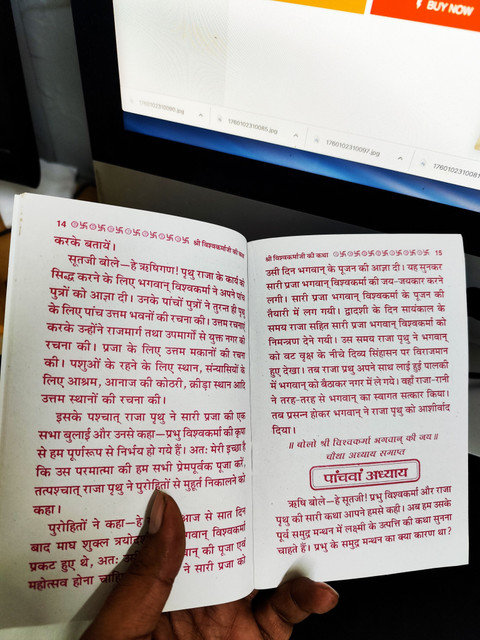 BUY NOW
1760102310085.jpg
1760102310097.jpg
176010231008
14
श्री विश्वकर्माजी की कथा
करके बतायें।
सूतजी बोले—हे ऋषिगण! पृथु राजा के कार्य को
सिद्ध करने के लिए भगवान् विश्वकर्मा ने अपने पांच
पुत्रों को आज्ञा दी। उनके पांचों पुत्रों ने तुरन्त ही पृथु
के लिए पांच उत्तम भवनों की रचना की। उत्तम रचनाएं
करके उन्होंने राजमार्ग तथा उपमार्गों से युक्त नगर की
रचना की। प्रजा के लिए उत्तम मकानों की रचना
की। पशुओं के रहने के लिए स्थान, संन्यासियों के
लिए आश्रम, आनाज की कोठरी, क्रीड़ा स्थान आदि
उत्तम स्थानों की रचना की।
इसके पश्चात् राजा पृथु ने सारी प्रजा की एक
सभा बुलाई और उनसे कहा—प्रभु विश्वकर्मा की कृपा
से हम पूर्णरूप से निर्भय हो गये हैं। अतः मेरी इच्छा है
कि उस परमात्मा की हम सभी प्रेमपूर्वक पूजा करें,
तत्पश्चात् राजा पृथु ने पुरोहितों से मुहूर्त निकालने को
कहा।
पुरोहितों ने कहा—हे आज से सात दिन
बाद माघ शुक्ल त्रयोदशी भगवान् विश्वकर्मा
प्रकट हुए थे, अतः की पूजा एवं
महोत्सव होना चाहिए ने सारी प्रजा को
श्री विश्वकर्माजी की कथा
15
उसी दिन भगवान् के पूजन की आज्ञा दी। यह सुनकर
सारी प्रजा भगवान् विश्वकर्मा की जय-जयकार करने
लगी। सारी प्रजा भगवान् विश्वकर्मा के पूजन की
तैयारी में लग गयी। द्वादशी के दिन सायंकाल के
समय राजा सहित सारी प्रजा भगवान् विश्वकर्मा को
निमन्त्रण देने गयी। उस समय राजा पृथु ने भगवान्
को वट वृक्ष के नीचे दिव्य सिंहासन पर विराजमान
हुए देखा। तब राजा प्रथु अपने साथ लाई हुई पालकी
में भगवान् को बैठाकर नगर में ले गये। वहाँ राजा-रानी
ने तरह-तरह से भगवान् का स्वागत सत्कार किया।
तब प्रसन्न होकर भगवान् ने राजा पृथु को आशीर्वाद
दिया।
॥ बोलो श्री विश्वकर्मा भगवान् की जय॥
चौथा अध्याय समाप्त
पांचवां अध्याय
ऋषि बोले—हे सूतजी! प्रभु विश्वकर्मा और राजा
पृथु की सारी कथा आपने हमसे कही। अब हम उसके
पूर्व समुद्र मन्थन में लक्ष्मी के उत्पत्ति की कथा सुनना
चाहते हैं। प्रभु के समुद्र मन्थन का क्या कारण था?